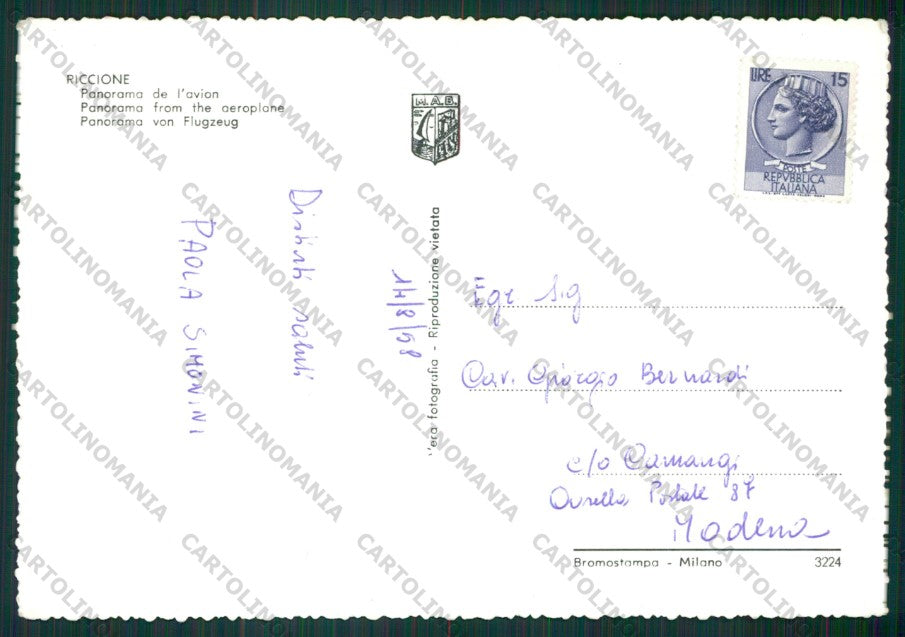 RICCIONE
Panorama de l'avion
Panorama from the aeroplane
Panorama von Flugzeug
M.A.B.
LIRE 15
POSTE
REPVBBLICA
ITALIANA
Distinti saluti
PAOLA SIMONINI
14/8/58
Vera fotografia - Riproduzione vietata
Egr Sig
Cav. Giorgio Bernardi
c/o Camangi
Postale 87
Modena
Bromostampa - Milano
3224
CARTOLINOMANIA